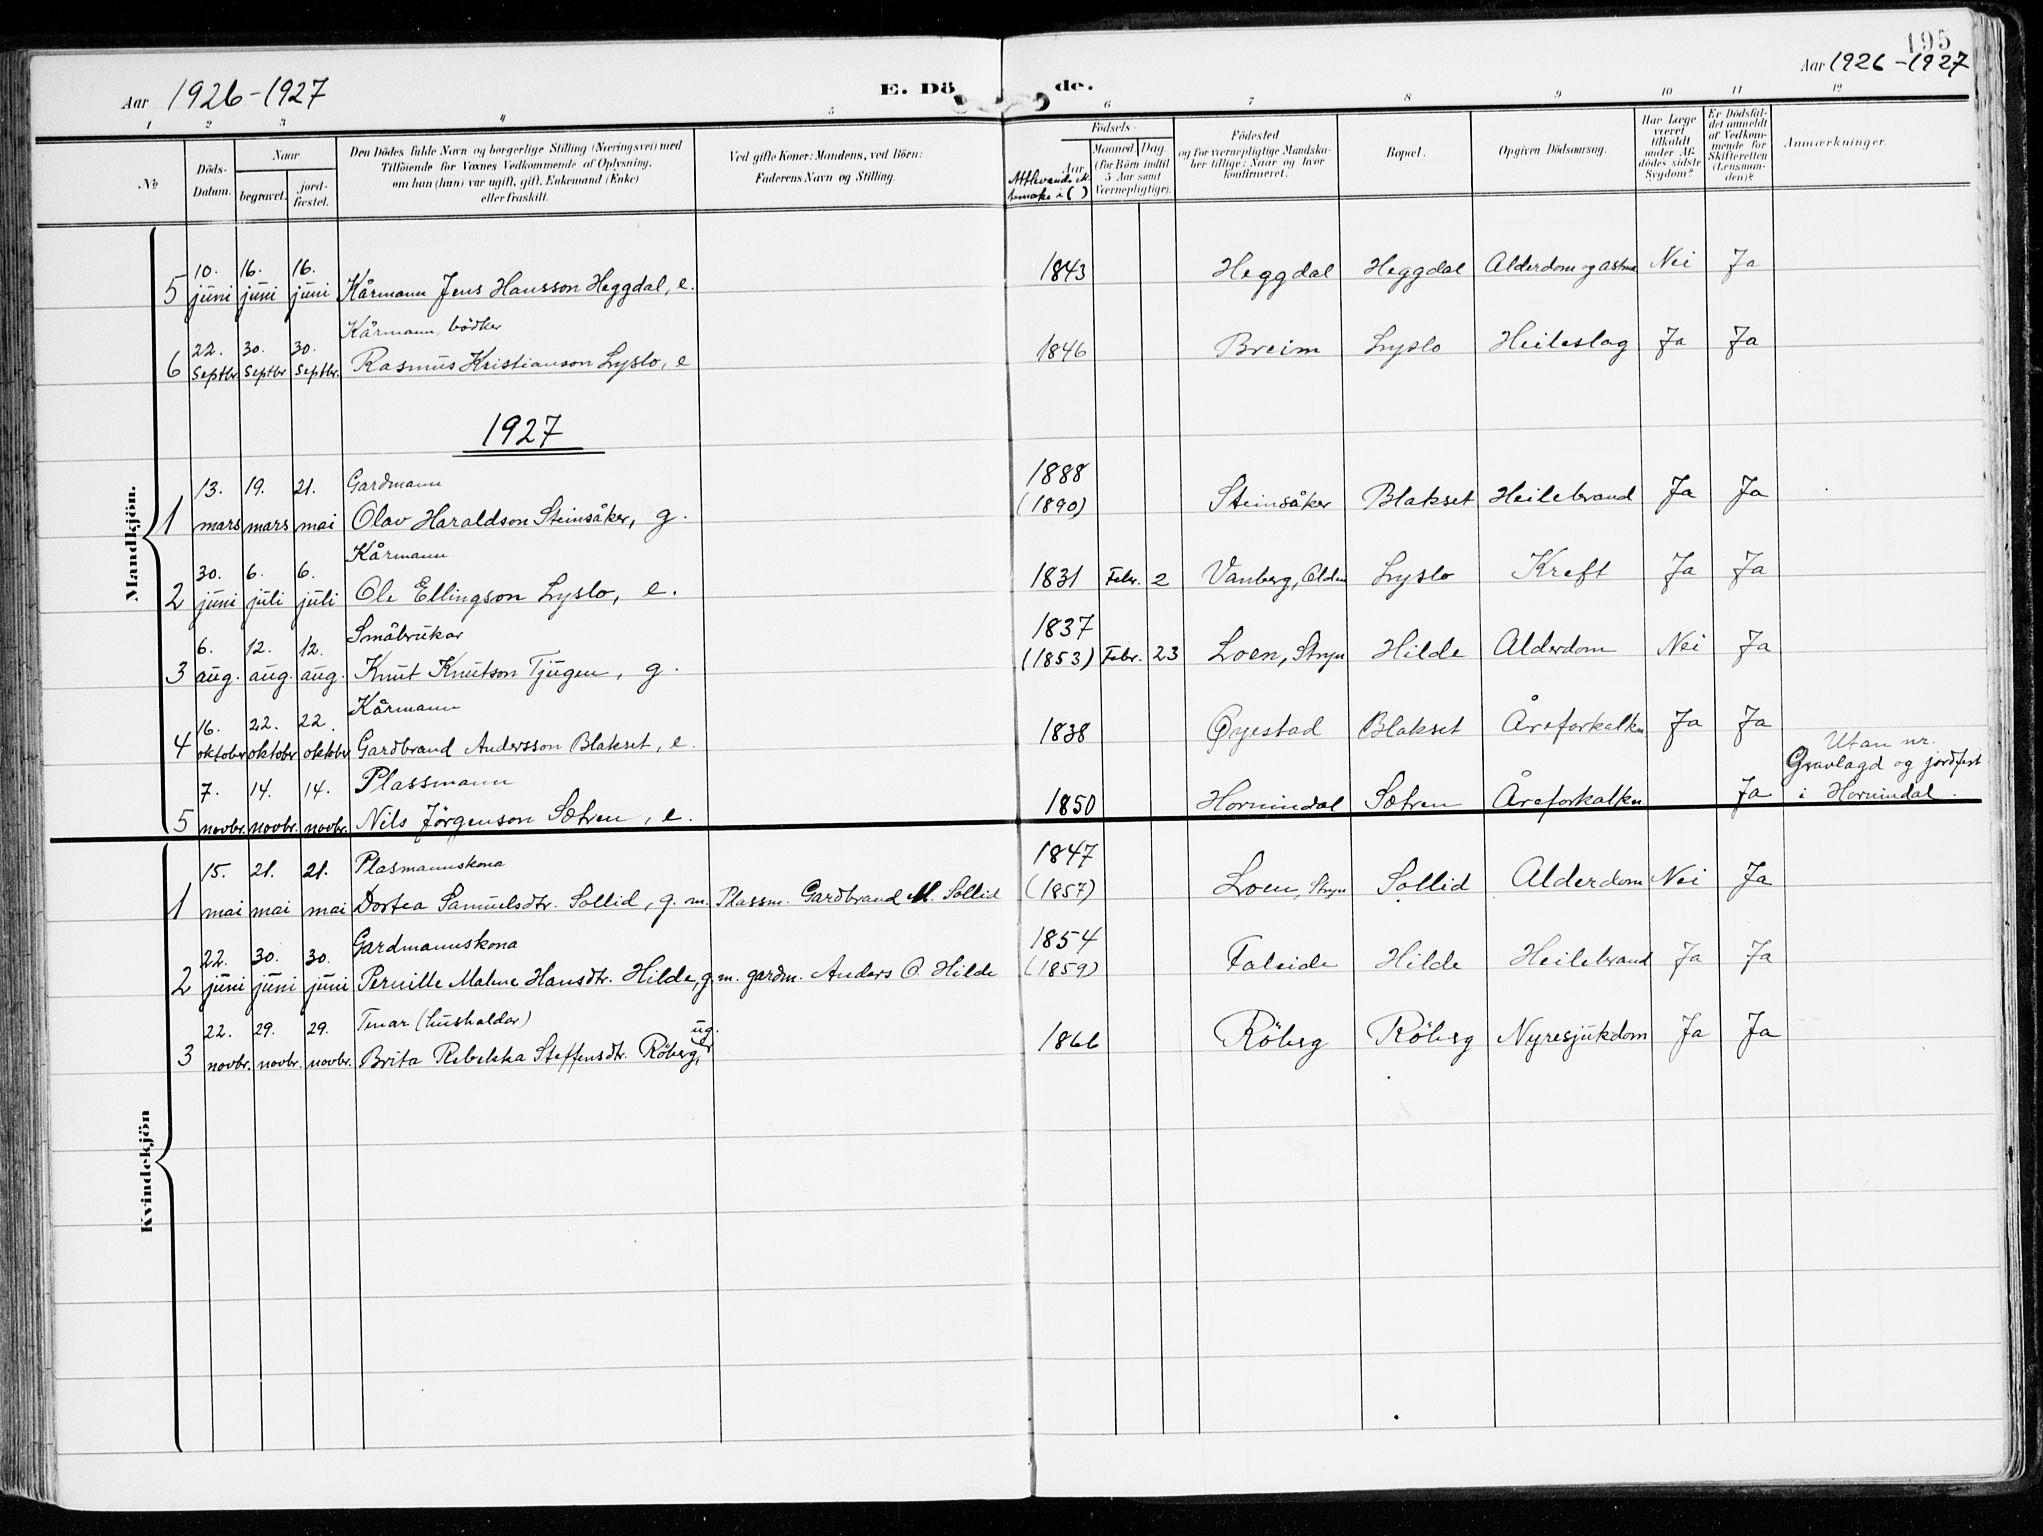 195
Aar 1926-1927 E. Dö de. Aar 1926-1927
1 2 3 4 5 6 7 8 9 10 11 12
No
Döds-Datum.
Naar
begravet.
jord-fæstet.
Den Dödes fulde Navn og borgerlige Stilling (Næringsvei) med
Tilföiende for Voxnes Vedkommende af Oplysning,
om han (hun) var ugift, gift, Enkemand (Enke)
eller fraskilt.
Ved gifte Koner: Mandens, ved Börn:
Faderens Navn og Stilling.
Födsels-
Aar
Maaned Dag
(for Börn indtil
5 Aar samt
Værnepligtige).
Födested
og for værnepligtige Mandska-
ber tillige: Naar og hvor
konfirmeret.
Bopæl.
Opgiven Dödsaarsag.
Har Læge
været
tilkaldt
under Af-
dödes sidste
Sygdom?
Er Dödsfal-
det anmeldt
af Vedkom-
mende for
Skifteretten
(Lensman-
den)?
Anmærkninger.
Mandkjön.
10. 16. 16.
5 juni juni juni Kårmann Jens Hansson Heggdal, e. 1843 Heggdal Heggdal Alderdom og astma Nei Ja
Kårmann, bödker
22. 30. 30.
6 Septbr Septbr Septbr. Rasmus Kristianson Lyslo, e 1846 Breim Lyslo Heileslag Ja Ja
1927
13. 19. 21. Gardmann 1888
1 mars mars mai Olav Haraldson Steinsåker, g. (1890) Steinsåker Blakset Heilebrand Ja Ja
30. 6. 6. Kårmann
2 juni juli juli Ole Ellingson Lyslo, e. 1831 Febr. 2 Vanberg, Olden Lyslo Kreft Ja Ja
6. 12. 12. Småbrukar 1837
3 aug. aug. aug. Knut Knutson Tjugen, g. (1853) Febr. 23 Loen, Stryn Hilde Alderdom Nei Ja
16. 22. 22. Kårmann
4 oktober oktober oktober Gardbrand Andersson Blakset, e. 1838 Øyestad Blakset Åreforkalkn Ja Ja
7. 14. 14. Plassmann Utan nr.
Gravlagd og jordfest
5 novbr. novbr. novbr. Nils Jörgenson Sætren, e. 1850 Hornindal Sætren Åreforkalkn Ja i Hornindal.
Kvindekjön
15. 21. 21. Plasmannskona 1847
1 mai mai mai Dortea Samuelsdtr. Sollid, g. m. Plassm. Gardbrand M. Sollid (1857) Loen, Stryn Sollid Alderdom Nei Ja
22. 30. 30. Gardmannskona 1854
2 juni juni juni Pernille Malene Hansdtr. Hilde, g. m. gardm. Anders O Hilde (1859) Faleide Hilde Heilebrand Ja Ja
22. 29. 29. Tenar (husholdar) ug.
3 novbr. novbr. novbr. Brita Rebekka Steffensdtr. Röberg, 1866 Röberg Röberg Nyresjukdom Ja Ja